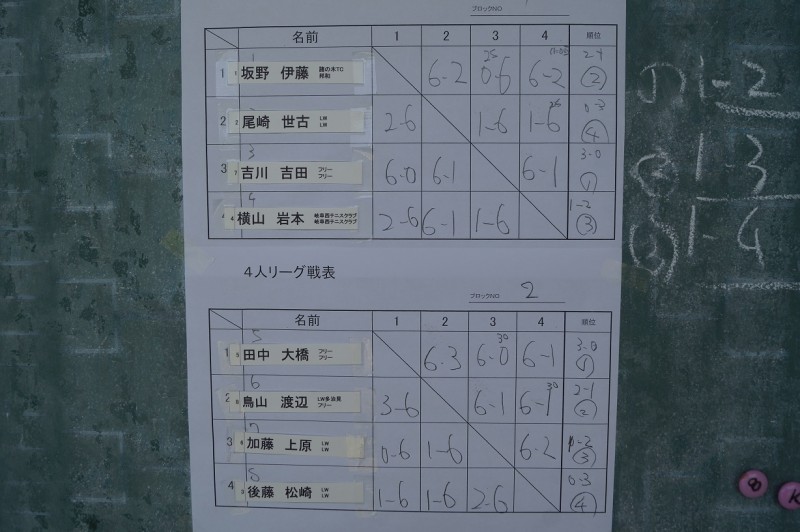 ブロックNO
名前 1 2 3 4 順位
1 1 坂野 伊藤 6-2 0-6 6-2 2-1 ②
2 2 尾崎 世古 LW LW 2-6 1-6 1-6 0-3 ④
3 3 吉川 吉田 フリー フリー 6-0 6-1 6-1 3-0 ①
4 4 横山 岩本 岐阜西テニスクラブ 岐阜西テニスクラブ 2-6 6-1 1-6 1-2 ③
4人リーグ戦表
ブロックNO 2
名前 1 2 3 4 順位
1 5 田中 大橋 フリー フリー 6-3 6-0 6-1 3-0 ①
2 6 鳥山 渡辺 LW多治見 フリー 3-6 6-1 6-1 2-1 ②
3 7 加藤 上原 LW LW 0-6 1-6 6-2 1-2 ③
4 8 後藤 松崎 LW LW 1-6 1-6 2-6 0-3 ④
① 1-2
② 1-3
③ 1-4
8
K